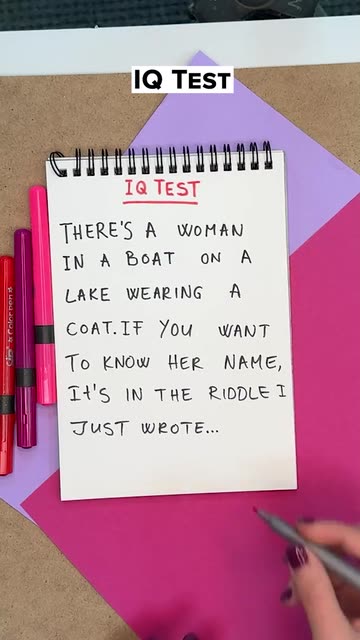 IQ TEST
IQ TEST
THERE'S A WOMAN
IN A BOAT ON A
LAKE WEARING A
COAT. IF YOU WANT
TO KNOW HER NAME,
IT'S IN THE RIDDLE I
JUST WROTE...